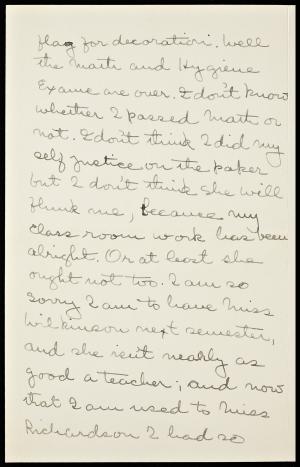 flag for decoration. Well
the Math and Hygiene
Exams are over. I don't know
whether I passed Math or
not. I don't think I did my
self justice on the paper
but I don't think she will
flunk me, because my
class room work has been
alright. Or at least she
ought not too. I am so
sorry I am to have Miss
Wilkinson next semester,
and she isn't nearly as
good a teacher; and now
that I am used to Miss
Richardson I had so